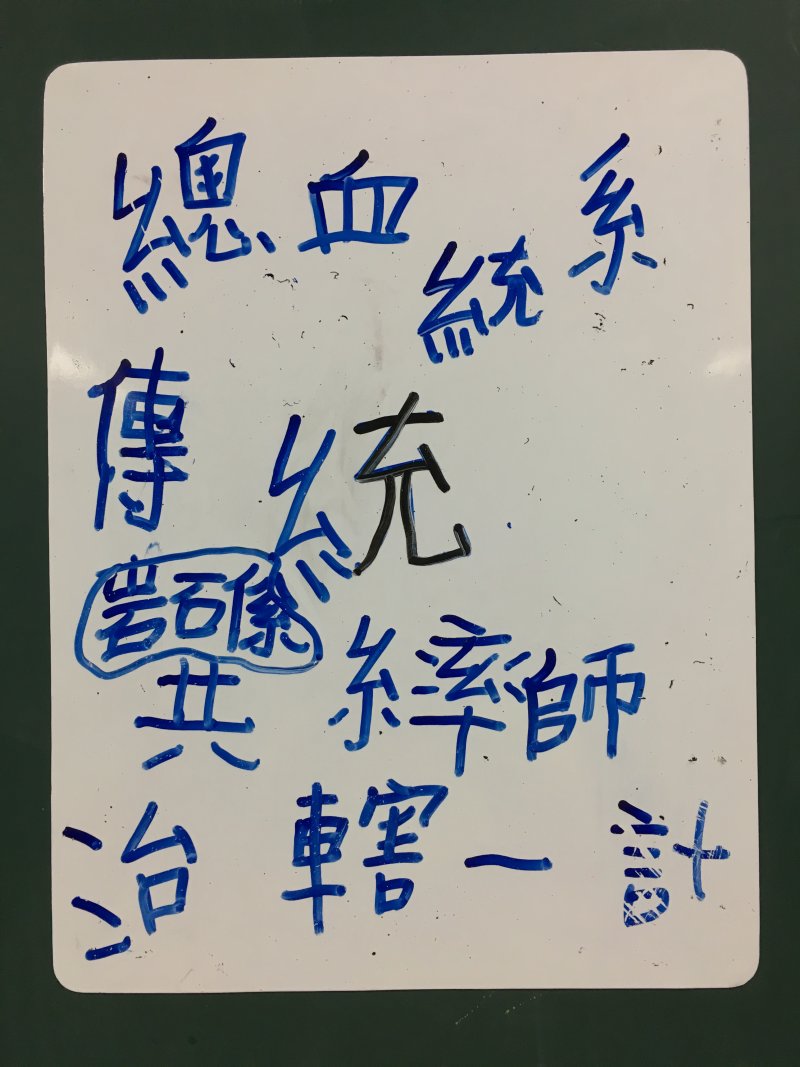 總 血 系
統
傳 統
岩石係
共 繂師
治 轄 一 計